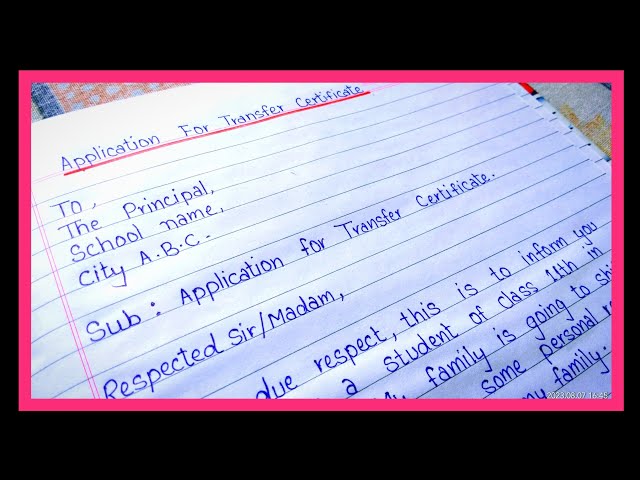 Application For Transfer Certificate
To,
The Principal,
School name,
City A.B.C.
Sub: Application for Transfer Certificate.
Respected Sir/Madam,
due respect, this is to inform you
a student of class 11th in
My family is going to
some personal
my family.
2023.08.07 16:48